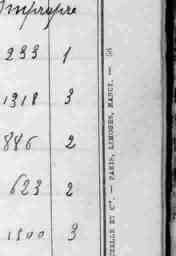 Impropre
233 1
1318 3
846 2
623 2
1500 3
TELLE ET Cie. — PARIS, LIMOGES, NANCY. — 56